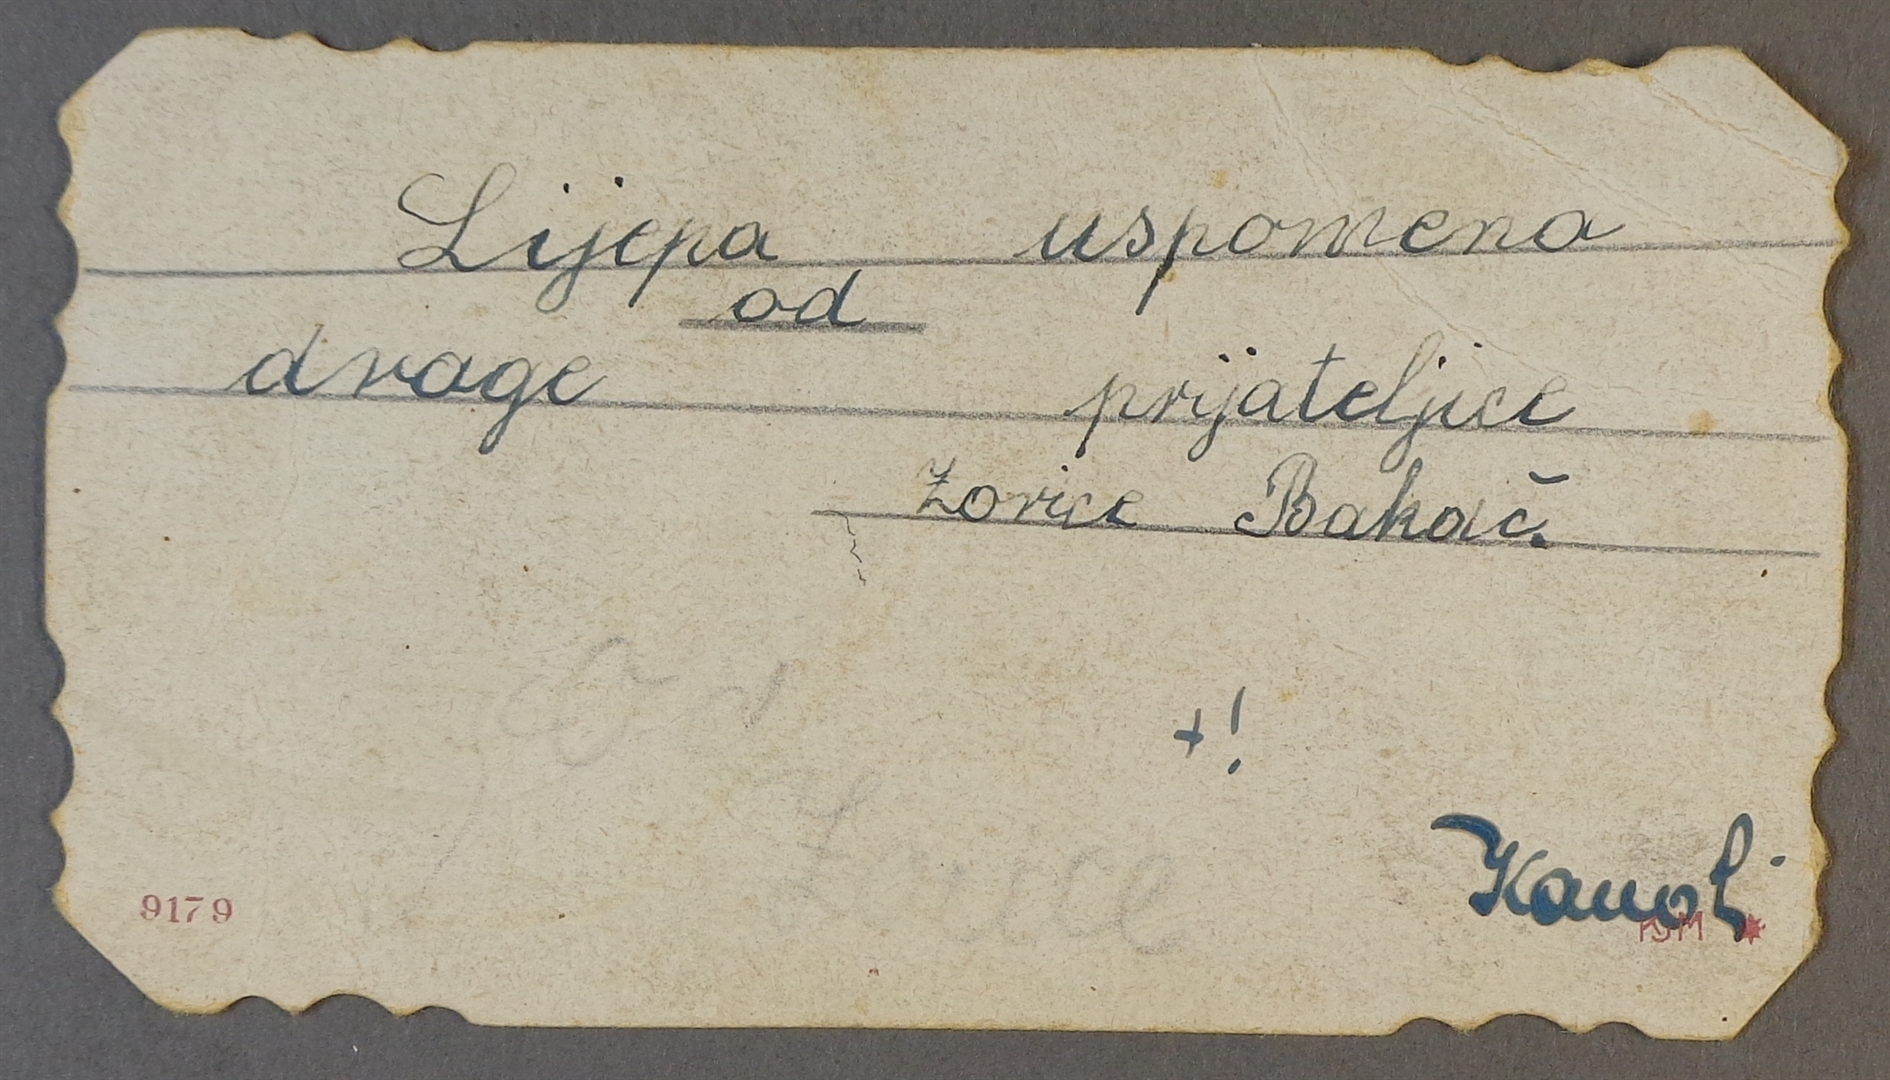 Lijepa uspomena
od
drage prijateljice
Zorice Bakač.
+!
9179